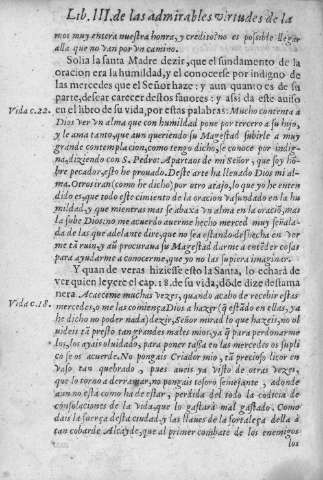 Lib. III. de las admirables virtudes de la
mos muy entera nuestra honra, y credito? no es possible llegar
alla que no van por vn camino.
Solia la santa Madre dezir, que el fundamento de la
oracion era la humildad, y el conocerse por indigno de
las mercedes que el Señor haze: y aun quanto es de su
parte, desear carecer destos fauores: y assi da este auiso
Vida c. 22.
en el libro de su vida, por estas palabras: Mucho contenta a
Dios ver vn alma que con humildad pone por tercero a su hijo,
y le ama tanto, que aun queriendo su Magestad subirle a muy
grande contemplacion, como tengo dicho, se conoce por indig-
na, diziendo con S. Pedro: Apartaos de mi Señor, que soy hõ-
bre pecador, esto he prouado. Deste arte ha lleuado Dios mi al-
ma. Otros iran (como he dicho) por otro atajo, lo que yo he enten
dido es, que todo este cimiento de la oracion va fundado en la hu
mildad, y que mientras mas se abaxa vn alma en la oraciõ, mas
la sube Dios: no me acuerdo auerme hecho merced muy señala-
da de las que adelante dire, que no sea estando deshecha en ver
me tã ruin, y aũ procuraua su Magestad darme a entẽder cosas
para ayudarme a conocerme, que yo no las supiera imaginar.
Y quan de veras hiziesse esto la Santa, lo echará de
ver quien leyere el cap. 18. de su vida, dõde dize desta ma
Vida c. 18.
nera. Acaeceme muchas vezes, quando acabo de recebir estas
mercedes, o me las comiença Dios a hazer (q̃ estãdo en ellas, ya
he dicho no poder nada) dezir, Señor mirad lo que hazeis, no ol
uideis tã presto tan grandes males mios, ya q̃ para perdonarme
los, los ayais oluidado, para poner tassa en las mercedes os supli
co se os acuerde. No pongais Criador mio, tã precioso licor en
vaso tan quebrado, pues aueis ya visto de otras vezes,
que lo torno a derramar, no pongais tesoro semejante, adonde
aun no está como ha de estar, perdida del todo la codicia de
consolaciones de la vida, que lo gastará mal gastado. Como
dais la fuerça desta ciudad, y las llaues de la fortaleça della à
tan cobarde Alcayde, que al primer combate de los enemigos
los